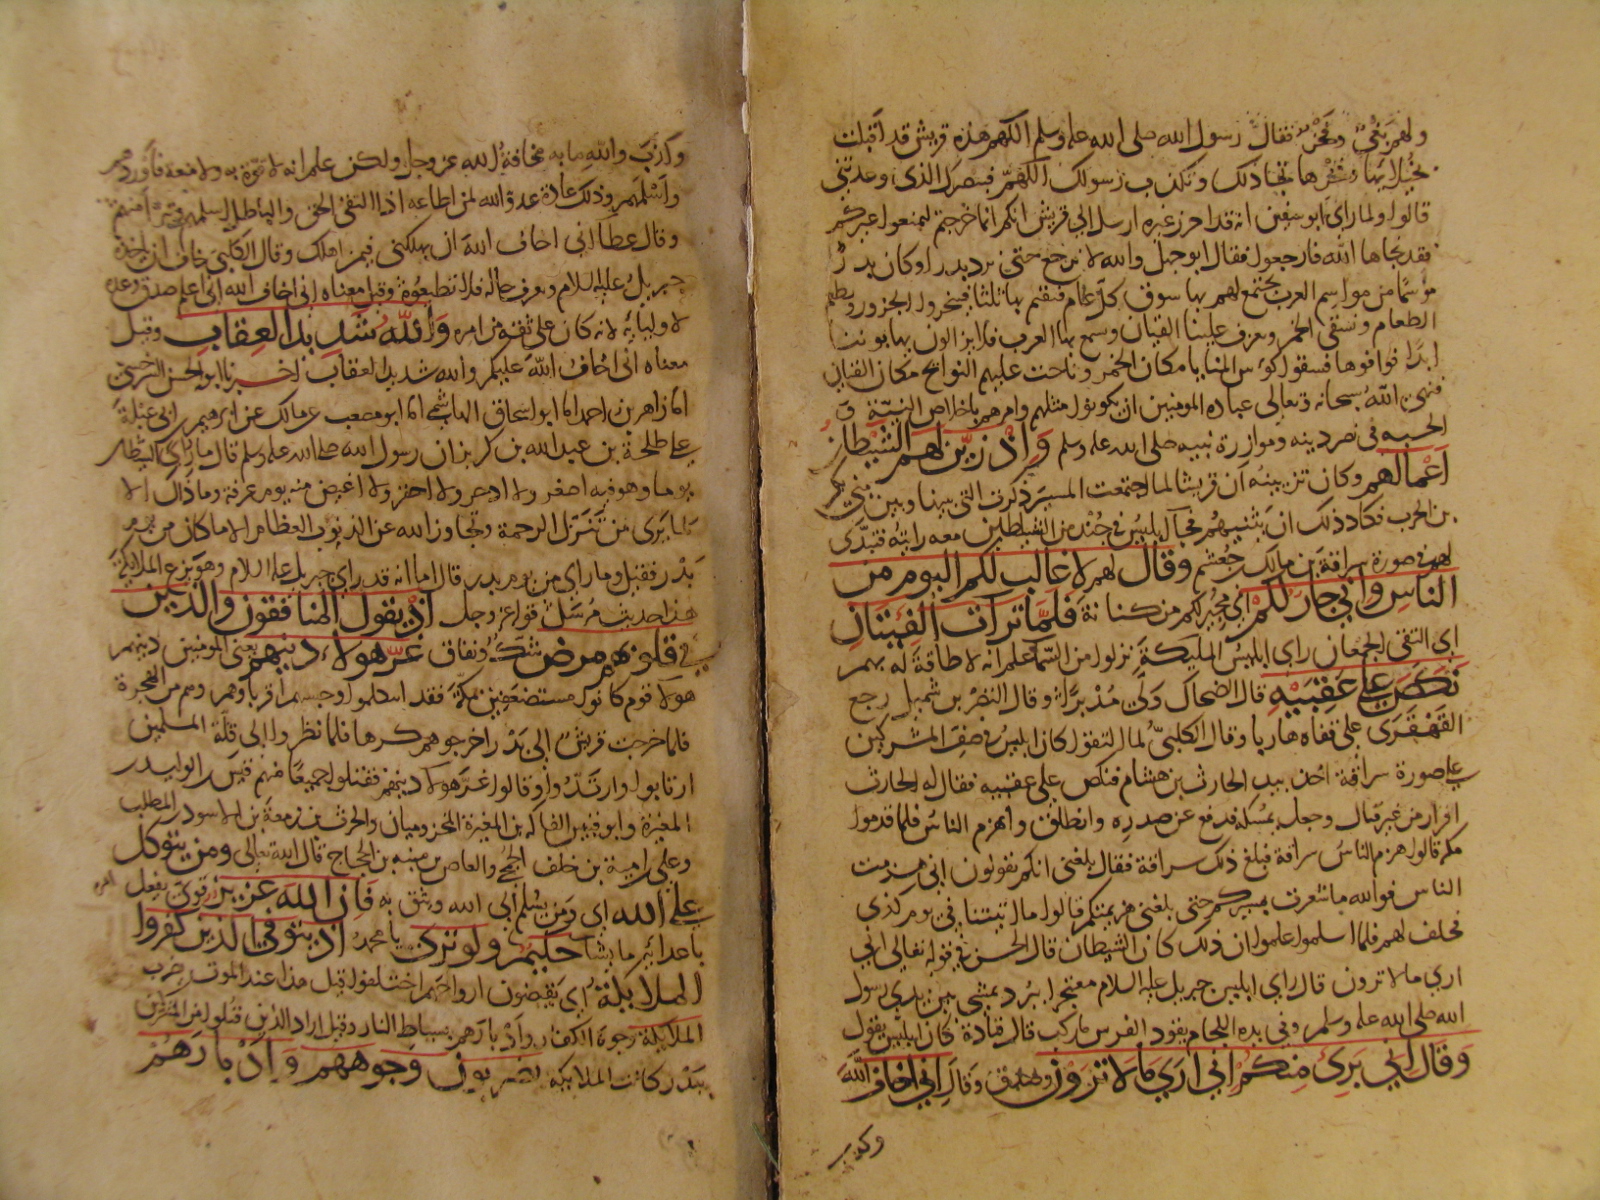 ولهم بغي وفخر فقال رسول الله صلى الله عليه وسلم اللهم هذه قريش قد اقبلت
بخيلايها وفخرها تجادلك وتكذب رسولك اللهم فنصرك الذي وعدتني
قالوا ولما راي ابو سفين انه قد احرز عيره ارسل الى قريش انكم انما خرجتم لتمنعوا عيركم
فقد نجاها الله فارجعوا فقال ابو جهل والله لا نرجع حتى نرد بدرا وكان بدر
موسما من مواسم العرب يجتمع لهم بها سوق كل عام فنقيم بها ثلثا فننحر الجزور ونطعم
الطعام ونسقى الخمر وتعزف علينا القيان وتسمع بنا العرب فلا يزالون يهابوننا
ابدا فوافوها فسقوا كوس المنايا مكان الخمر وناحت عليهم النوايح مكان القيان
فنهى الله سبحانه وتعالى عباده المومنين ان يكونوا مثلهم وامرهم باخلاص النية و
الحسبه في نصر دينه وموازرة نبيه صلى الله عليه وسلم واذ زين لهم الشيطان
اعمالهم وكان تزيينه ان قريشا لما اجتمعت المسير ذكرت التي بينها وبين بني بكر
بن الحرب فكاد ذلك ان يثنيهم فجآ ابليس في جند من الشياطين معه رايته فتبدى
لهم في صورة سراقة بن مالك بن جعشم وقال لهم لا غالب لكم اليوم من
الناس واني جار لكم اي مجير لكم من كنانة فلما ترات الفيتان
اي التقى الجمعان راي ابليس المليكة نزلوا من السما علم انه لا طاقة له بهم
نكص على عقبيه قال الضحاك ولى مدبرا وقال النضر بن شميل رجع
القهقرى على قفاه هاربا وقال الكلبي لما التقوا كان ابليس في صف المشركين
على صورة سراقة اخذ بيد الحارث بن هشام فنكص على عقبيه فقال له الحارث
افرار من غير قتال وجعل يمسكه فدفع عن صدره وانطلق وانهزم الناس فلما قدموا
مكة قالوا هزم الناس سراقة فبلغ ذلك سراقة فقال بلغني انكم تقولون اني هزمت
الناس فوالله ما شعرت بمسيركم حتى بلغني هزيمتكم قالوا ما اتيتنا في يوم كذي
فحلف لهم فلما اسلموا علموا ان ذلك كان الشيطان قال الحسن في قوله تعالى اني
اري ما لا ترون قال راي ابليس جبريل عليه السلام معتجرا ببرد يمشي بين يدي رسول
الله صلى الله عليه وسلم وفي يده اللجام يقود الفرس ما ركب قال قتادة كان ابليس يقول
وقال اني بري منكم اني اري ما لا ترون وصدق وقال اني اخاف الله
وكذب
وكذب والله ما به مخافة لله عز وجل ولكن علم انه لا قوة به ولا منعة فاوردهم
واسلمهم وذلك عادة عدو الله لمن اطاعه اذا التقى الحق والباطل اسلمهم وتبرا منهم
وقال عطا اني اخاف الله ان يهلكني فيمن اهلك وقال الكلبي خاف ان ياخذه
جبريل عليه السلام ويعرف حاله فلا تطيعوه وقيل معناه اني اخاف الله اي اعلم صدق وعده
لاوليايه لانه كان على ثقة من امره والله شديد العقاب وقيل
معناه اني اخاف الله عليكم والله شديد العقاب اخبرنا ابو الحسن السرخسي
انا زاهر بن احمد انا ابو اسحاق الهاشمي انا ابو مصعب عن مالك عن ابراهيم بن ابي عبلة
عن طلحة بن عبد الله بن كريز ان رسول الله صلى الله عليه وسلم قال ما راي الشيطان
يوما وهو فيه اصغر ولا ادحر ولا احقر ولا اغيض منه يوم عرفة وما ذاك الا
لما يرى من تنزل الرحمة وتجاوز الله عن الذنوب العظام الا ما كان من يوم
بدر فقيل وما راي من يوم بدر قال اما انه قد راي جبريل عليه السلام وهو يزع الملايكة
هذا حديث مرسل قوله عز وجل اذ يقول المنافقون والذين
في قلوبهم مرض شك ونفاق غر هولاء دينهم يعني المومنين دينهم
هولا قوم كانوا مستضعفين بمكة فقد اسلموا وحبسهم اقرباوهم ومنعوهم من الهجرة
فلما خرجت قريش الى بدر اخرجوهم كرها فلما نظروا الى قلة المسلمين
ارتابوا وارتدوا وقالوا غر هولا دينهم فقتلوا جميعا منهم قيس بن الوليد بن
المغيرة وابو قيس بن الفاكه بن المغيرة المخزوميان والحرث بن زمعة بن الاسود بن المطلب
وعلي بن امية بن خلف الجمحي والعاص بن منبه بن الحجاج قال الله تعالى ومن يتوكل
على الله اي ومن يسلم الى الله ويثق به فان الله عزيز قوي يفعل
باعدايه ما يشا حكيم ولو تري يا محمد اذ يتوفى الذين كفروا
الملايكة اي يقبضون ارواحهم اختلفوا قيل هذا عند الموت تضرب
الملايكة وجوه الكفار وادبارهم بسياط النار وقيل اراد الذين قتلوا من المشركين
ببدر كانت الملايكة يضربون وجوههم وادبارهم